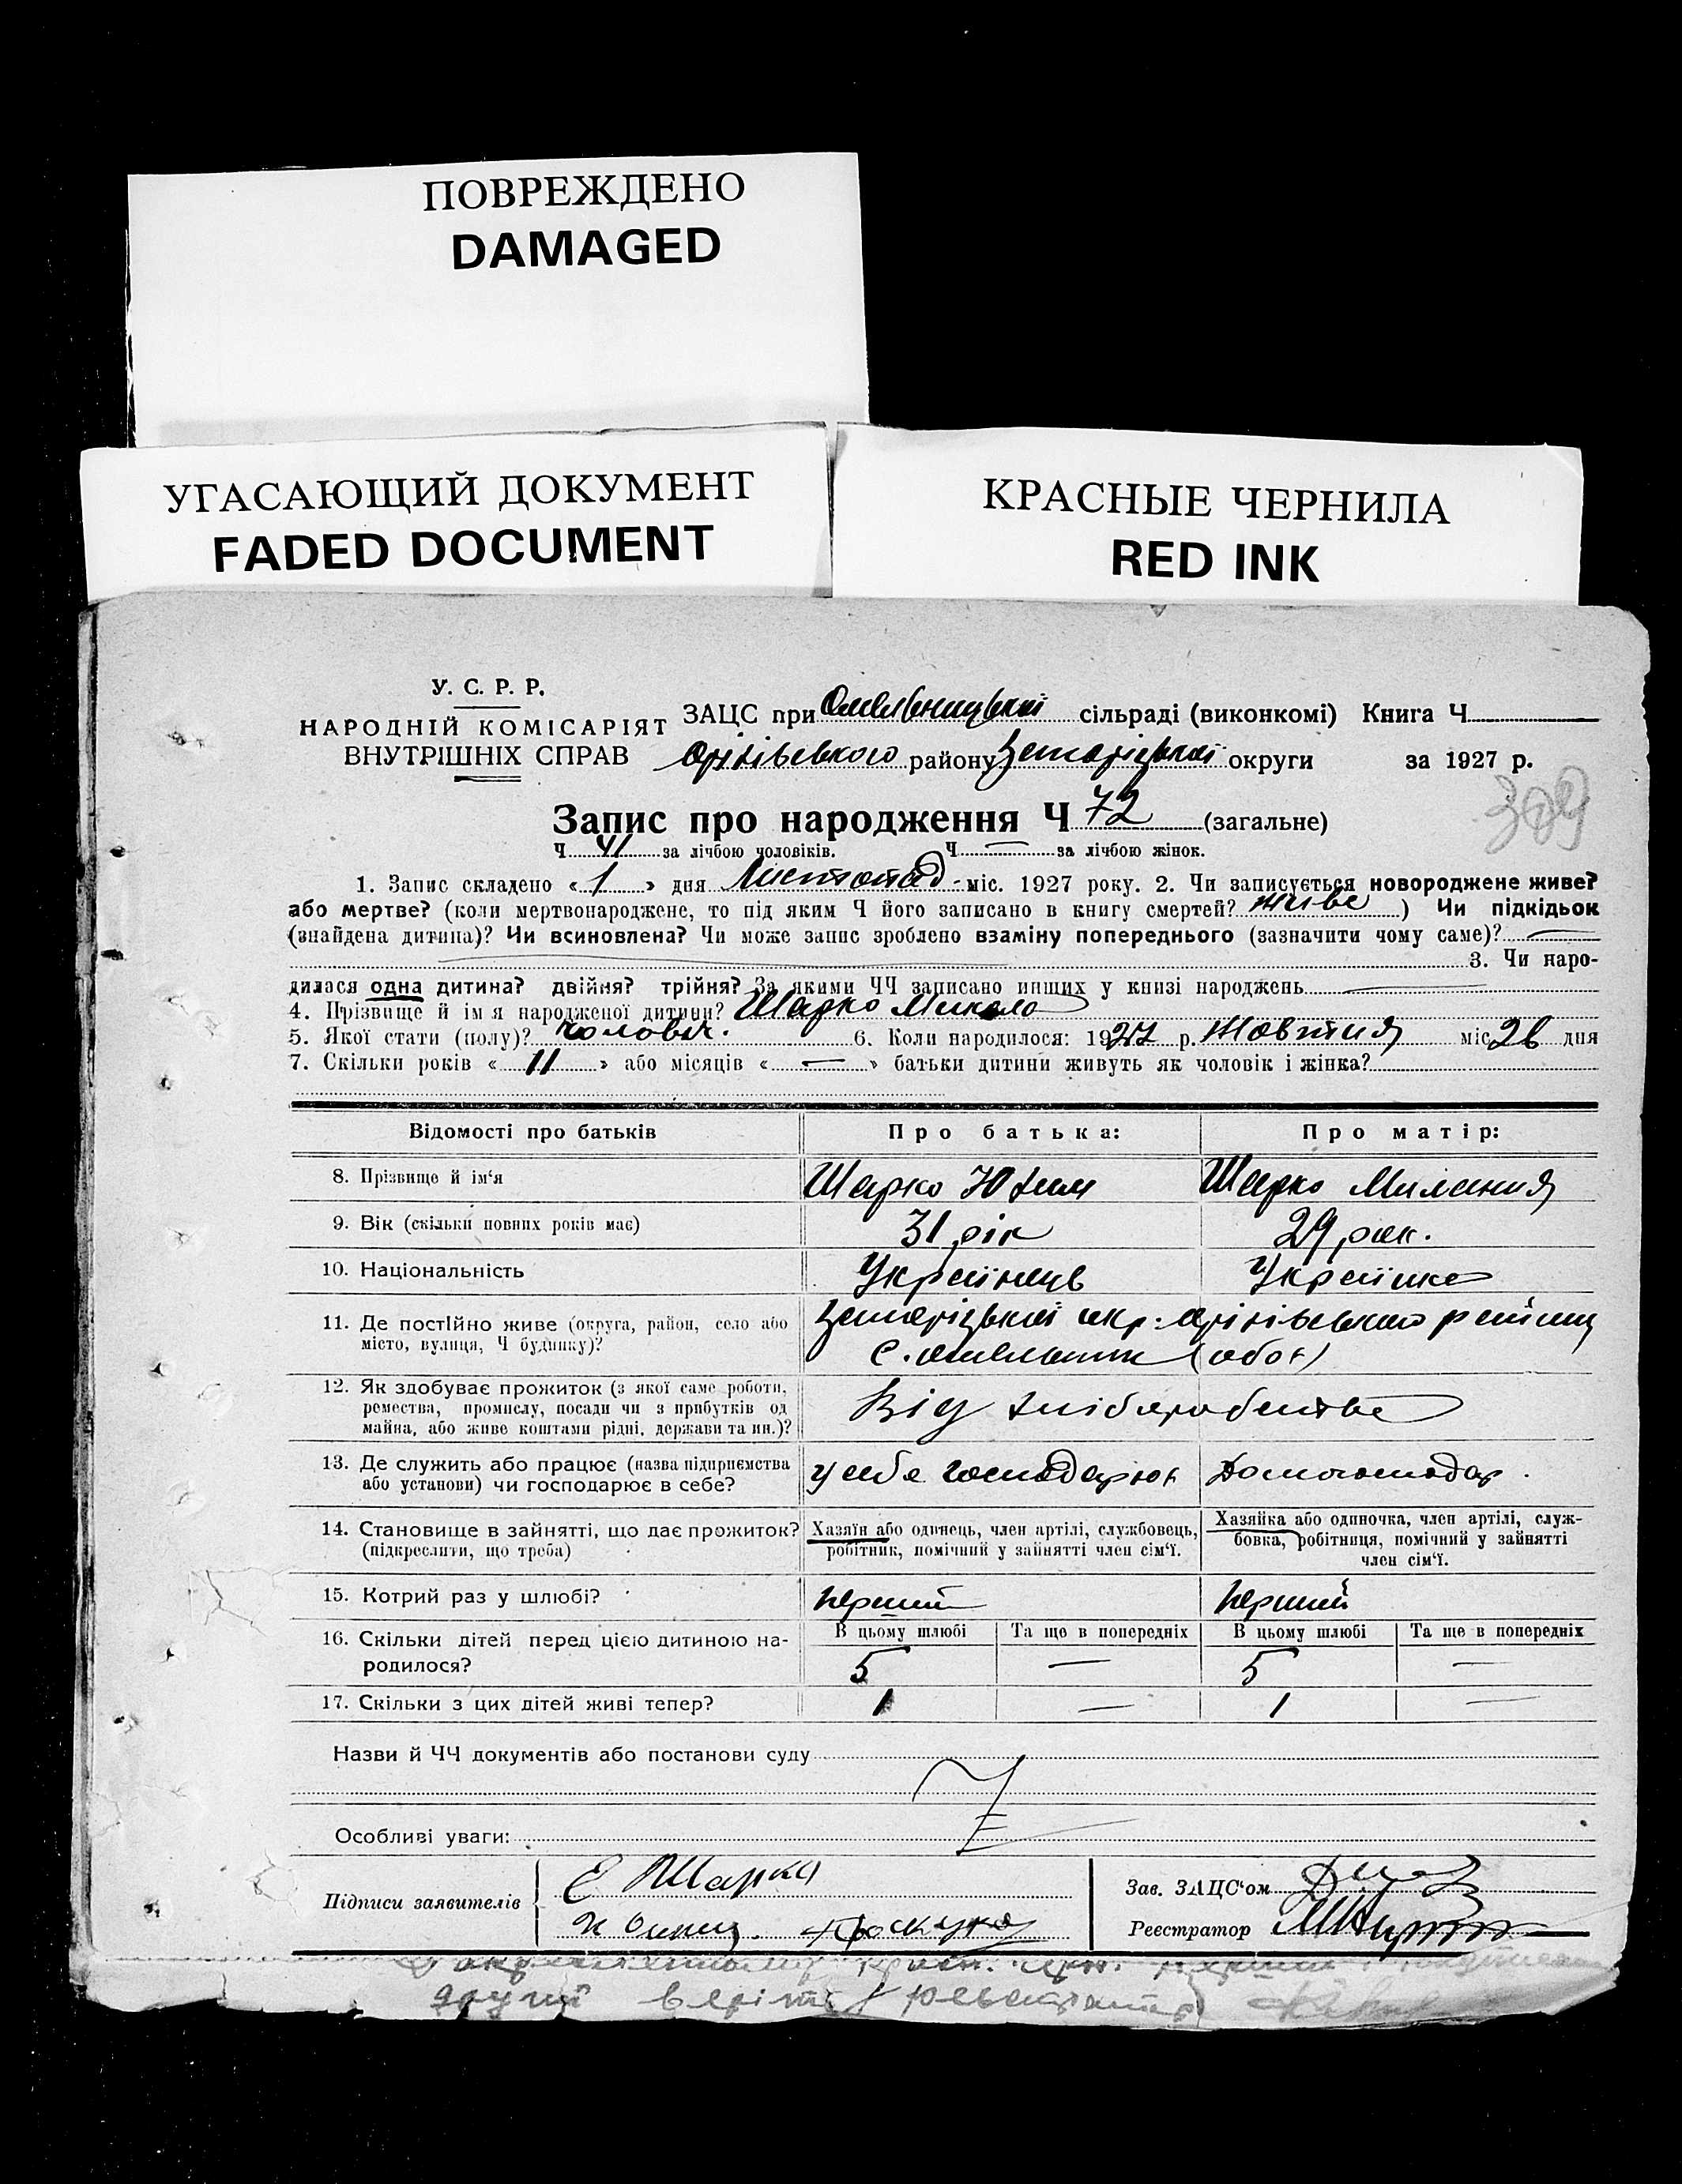 ПОВРЕЖДЕНО
DAMAGED
УГАСАЮЩИЙ ДОКУМЕНТ
FADED DOCUMENT
КРАСНЫЕ ЧЕРНИЛА
RED INK
У. С. Р. Р.
НАРОДНІЙ КОМІСАРІЯТ
ВНУТРІШНІХ СПРАВ
ЗАЦС при Омельницькій сільраді (виконкомі) Книга Ч
Оріхівського району Запоріцької округи за 1927 р.
309
Запис про народження Ч 72 (загальне)
Ч 41 за лічбою чоловіків. Ч — за лічбою жінок.
1. Запис складено « 1 » дня Листопад міс. 1927 року. 2. Чи записується новороджене живе?
або мертве? (коли мертвонароджене, то під яким Ч його записано в книгу смертей? живе ) Чи підкідьок
(знайдена дитина)? Чи всиновлена? Чи може запис зроблено взаміну попереднього (зазначити чому саме)? —
3. Чи наро-
дилася одна дитина? двійня? трійня? За якими ЧЧ записано инших у книзі народжень —
4. Прізвище й ім я народженої дитини? Шарко Микола
5. Якої стати (полу)? чоловіч. 6. Коли народилося: 1927 р. Жовтня міс 26 дня
7. Скільки років « 11 » або місяців « — » батьки дитини живуть як чоловік і жінка?
Відомості про батьків Про батька: Про матір:
8. Прізвище й ім‘я Шарко Юхим Шарко Милания
9. Вік (скільки повних років має) 31 рік 29 рок.
10. Національність Українець Українка
11. Де постійно живе (округа, район, село або Запоріцької окр. Оріхівського району
місто, вулиця, Ч будинку)? с. Омельник (обоє)
12. Як здобуває прожиток (з якої саме роботи,
ремества, промислу, посади чи з прибутків од
майна, або живе коштами рідні, держави та ин.)? Від хліборобства
13. Де служить або працює (назва підприємства
або установи) чи господарює в себе? у себе господарює Домогосподар.
14. Становище в зайнятті, що дає прожиток?
(підкреслити, що треба)
Хазяїн або одинець, член артілі, службовець,
робітник, помічний у зайнятті член сім‘ї.
Хазяйка або одиночка, член артілі, служ-
бовка, робітниця, помічний у зайнятті
член сім‘ї.
15. Котрий раз у шлюбі? перший перший
16. Скільки дітей перед цією дитиною на-
родилося?
В цьому шлюбі Та ще в попередніх В цьому шлюбі Та ще в попередніх
5 — 5 —
17. Скільки з цих дітей живі тепер? 1 — 1 —
Назви й ЧЧ документів або постанови суду
Особливі уваги:
Підписи заявителів Е Шарко
Зав. ЗАЦС‘ом
Реєстратор